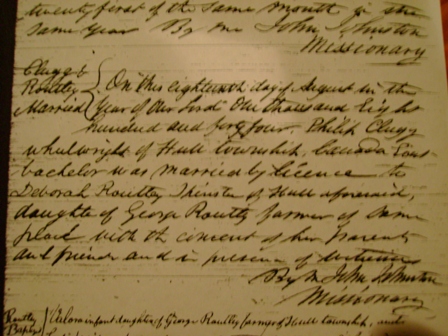 twenty first of the same month in the
same year By me John Johnston
Missionary
Clugg &
Routley
Married
On this eighteenth day of August in the
Year of Our Lord One thousand Eight
hundred and forty four, Philip Clugg
wheelwright of Hull township, Canada East
bachelor was married by licence to
Deborah Routley Spinster of Hull aforesaid,
daughter of George Routley farmer of same
place with the consent of her parents
and friends and in presence of witnesses
By me John Johnston
Missionary
Routley
Baptism
infant daughter of George Routley farmer of Hull township, and